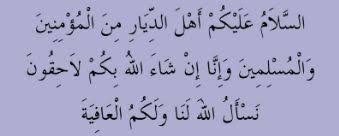 السَّلاَمُ عَلَيْكُمْ أَهْلَ الدِّيَارِ مِنَ الْمُؤْمِنِينَ
وَالْمُسْلِمِينَ وَإِنَّا إِنْ شَاءَ اللهُ بِكُمْ لاَحِقُونَ
نَسْأَلُ اللهَ لَنَا وَلَكُمُ الْعَافِيَةَ